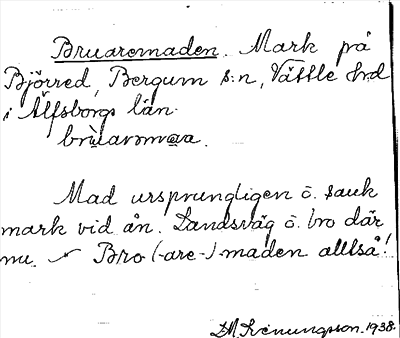 Bruaremaden. Mark på
Björred, Bergum s:n, Vättle hd
i Älfsborgs län.
brùarəmɑa.
Mad ursprungligen o. sank
mark vid ån. Landsväg o. bro där
nu. Bro (-are-) maden alltså!
DM Svenungsson. 1938.